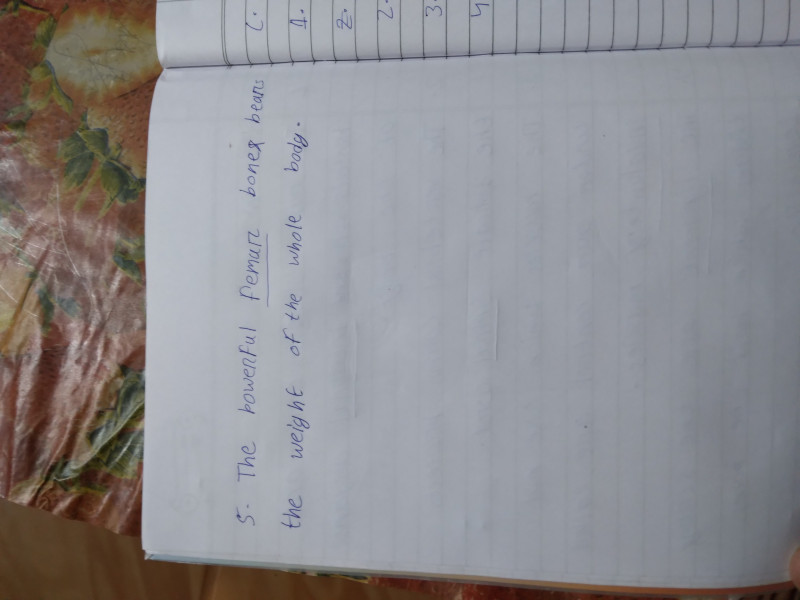 5. The powerful femur bones bears
the weight of the whole body.
C.
1.
2.
2.
3.
4